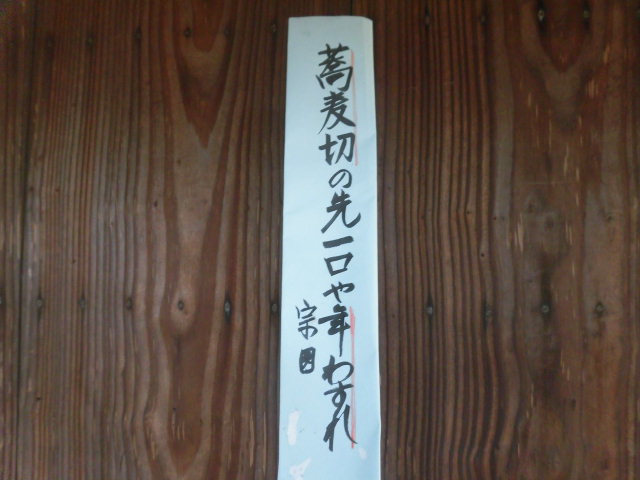 蕎麦切の先一口や年わすれ
宗因